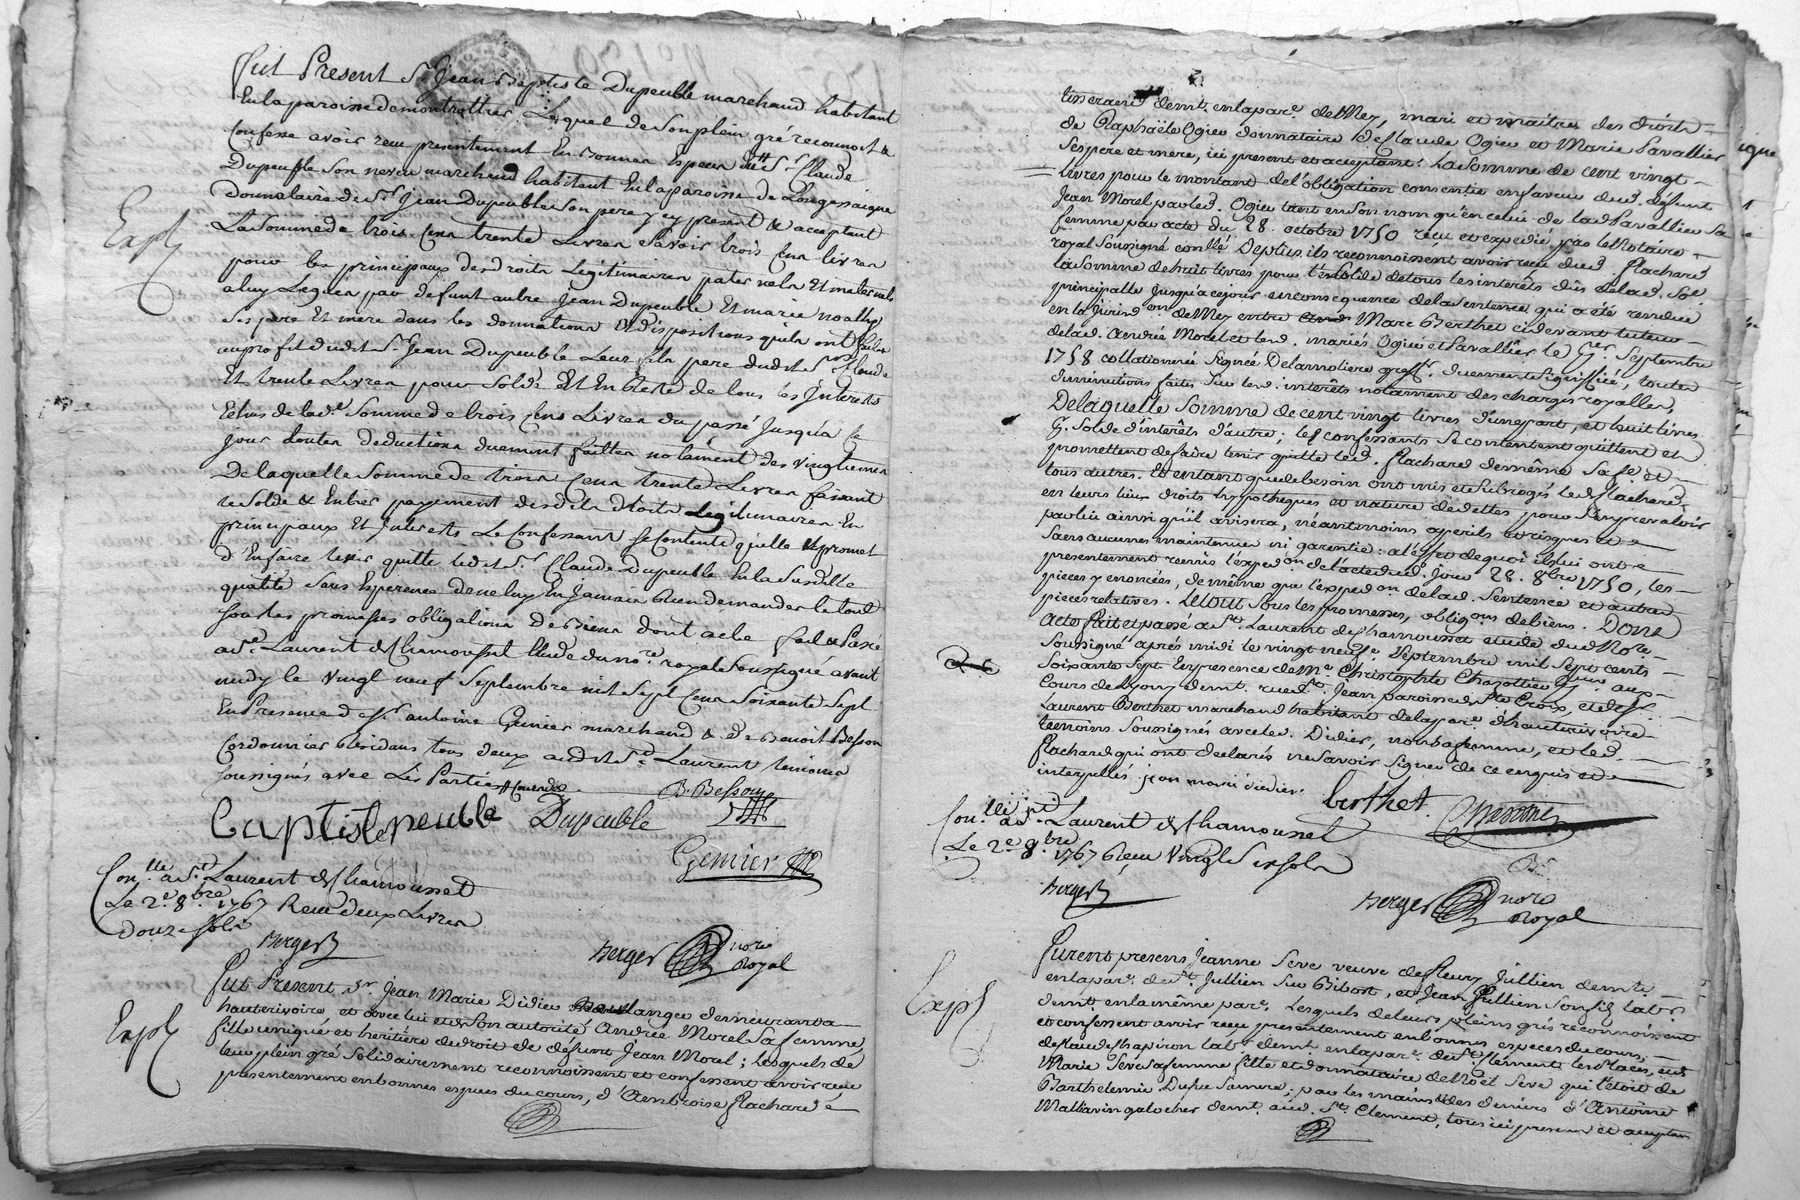 Fut Present Sr Jean Baptiste Dupeuble marchand habitant
En la paroisse de montrottier Lequel de son plein gré reconnoit &
Confesse avoir reçu presentement En bonnes Especes du Sr Claude
Dupeuble son neveu marchand habitant En la paroisse de Longessaigne
Donnataire de Sr Jean Dupeuble son pere y cy present & acceptant
La Somme de trois Cens trente Livres Savoir trois Cens livres
pour les principaux des droits Légitimaires paternels Et maternels
a luy Legués par defunt autre Jean Dupeuble Et marie noally
Ses pere Et mere dans les donnations Et dispositions qu'ils ont faites
au profit dudit Sr Jean Dupeuble Leur fils pere dudit Sr Claude
Et trente Livres pour Solde Et En Reste de tous les Interets
Echus de lade Somme de trois Cens Livres du passé Jusqu'a ce
jour toutes deductions duement faittes notament des vingtiemes
De laquelle Somme de trois Cens trente Livres faisant
le Solde & Entier payement desdits droits Légitimaires En
principaux Et Interets Le Confessant se Contente quitte & promet
d'En faire tenir quitte ledit Sr Claude Dupeuble En la Susditte
qualité Sans Esperence de ne luy En Jamais Rien demander le tout
sous les promesses obligations de Biens dont acte fait & Passé
a St Laurent de Chamousset Etude du nore royal Soussigné avant
midy le vingt neuf Septembre mil Sept Cens Soixante Sept
En Presence de Sr antoine Grenier marchand & de Benoit Besson
Cordonnier residans tous deux audit St Laurent temoins
soussignés avec Les Parties
B. Besson
Baptiste peuble Dupeuble
Grenier
Con.llé a St Laurent de Chamousset
Le 2e 8bre 1767 Reçu deux Livres
Douze sols
Berger
Berger nore
Royal
Expé
Fut Present Sr Jean Marie Didier Boulanger demeurant a
hauterivoire et avec lui et de son autorité Andrée Morel sa femme
fille unique et heritière de droit de défunt Jean Morel; lesquels de
leur plein gré solidairement reconnoissent et confessent avoir reçu
présentement en bonnes espèces du cours, d'Ambroise flachard
Expé
tisserand demt en la pare de Mey, mari et maître des droits
de Raphaële Ogier donnataire de Claude Ogier et Marie Lavallier
Ses pere et mere, ici present et acceptant: La Somme de cent vingt
livres pour le montant de l'obligation consentie en faveur dud. défunt
Jean Morel par led. Ogier tant en son nom qu'en celui de lad. Lavallier sa
femme par acte du 28. octobre 1750 reçu et expedié par le Notaire
royal Soussigné conllé. De plus ils reconnoissent avoir reçu dud. flachard
la Somme de huit livres pour Solde de tous les intérêts dûs de lad. Soe
principalle jusqu'a ce jour en consequence de la sentence qui a été rendue
en la Juridon de Mey entre Marc Berthet ci devant tuteur
de lad. Andrée Morel et lesd. mariés Ogier et Lavallier le Septembre
1758 collationnée Signée Delamoliere greffr, duement Signiffiée, toutes
diminutions faites Sur lesd. intérêts notament des charges royalles,
De laquelle Somme de cent vingt livres d'une part, et huit livres
Solde d'intérêts d'autre; les confessants se contentent quittent et
promettent de faire tenir quitte led. flachard de même Sa fe et
tous autres. Et entant que de besoin ont mis et Subrogés led. flachard
en leurs lieu droits hypotheques et nature de dettes pour S'en prevaloir
par lui ainsi qu'il avisera, néantmoins a perils et risques et
sans aucunes maintenue ni garentie: a l'effet de quoi ils lui ont
présentement remis l'expedon de l'acte dud. Jour 28. 8bre 1750, les
pieces y enoncées, de même que l'expedon de lad. Sentence et autres
pieces relatives. Le tout Sous les promesses, obligons de biens. Dont
Acte fait et passé a St Laurent de Chamousset etude dud. Nore
Soussigné après midi le vingt neufe Septembre mil Sept cents
Soixante Sept En presence de Me Christophe Chazottier aux
Cours de Lyon y demt rue St Jean paroisse Ste Croix, et de Sr
Laurent Berthet marchand habitant de la pare d'hauterivoire
temoins Soussignés avec led. Didier, non sa femme, et led.
flachard qui ont declarés ne savoir signer de ce enquis et
interpellés. jean marie didier.
berthet
Con.llé a St Laurent de Chamousset
Le 2e 8bre 1767 Reçu Vingt Six sols
Berger
Berger nore
Royal
Expé
Furent presens Jeanne Seve veuve de fleury Jullien demte
en la pare de St Jullien Sur Bibost, et Jean Jullien Son fils labr
demt en la même pare. Lesquels de leurs pleins grés reconnoissent
et confessent avoir reçu presentement en bonnes especes du cours,
de Claude Chapiron labr demt en la pare de St Clément les places, et
Marie Seve sa femme fille et donnataire de Noël Seve qui l'étoit de
Barthelemie Dupré Sa mere; par les mains & des deniers d'Antoine
Mathavin galocher demt aud. St. Clement, tous ici presens et acceptans